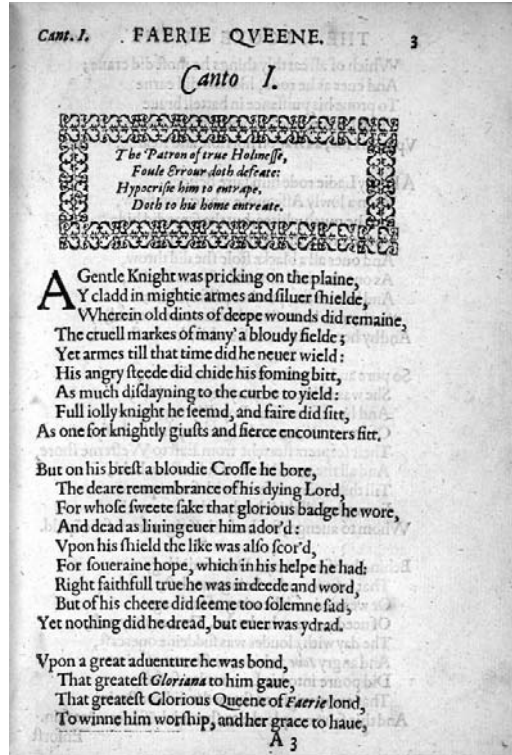 Cant. I.
FAERIE QVEENE.
3
Canto I.
The Patron of true Holineſſe,
Foule Errour doth defeate:
Hypocriſie him to entrape,
Doth to his home entreate.
A Gentle Knight was pricking on the plaine,
Y cladd in mightie armes and ſiluer ſhielde,
Wherein old dints of deepe wounds did remaine,
The cruell markes of many' a bloudy fielde;
Yet armes till that time did he neuer wield:
His angry ſteede did chide his foming bitt,
As much diſdayning to the curbe to yield:
Full iolly knight he ſeemd, and faire did ſitt,
As one for knightly giuſts and fierce encounters fitt.
But on his breſt a bloudie Croſſe he bore,
The deare remembrance of his dying Lord,
For whoſe ſweete ſake that glorious badge he wore,
And dead as liuing euer him ador'd:
Vpon his ſhield the like was alſo ſcor'd,
For ſoueraine hope, which in his helpe he had:
Right faithfull true he was in deede and word,
But of his cheere did ſeeme too ſolemne ſad,
Yet nothing did he dread, but euer was ydrad.
Vpon a great aduenture he was bond,
That greateſt Gloriana to him gaue,
That greateſt Glorious Queene of Faerie lond,
To winne him worſhip, and her grace to haue,
A 3